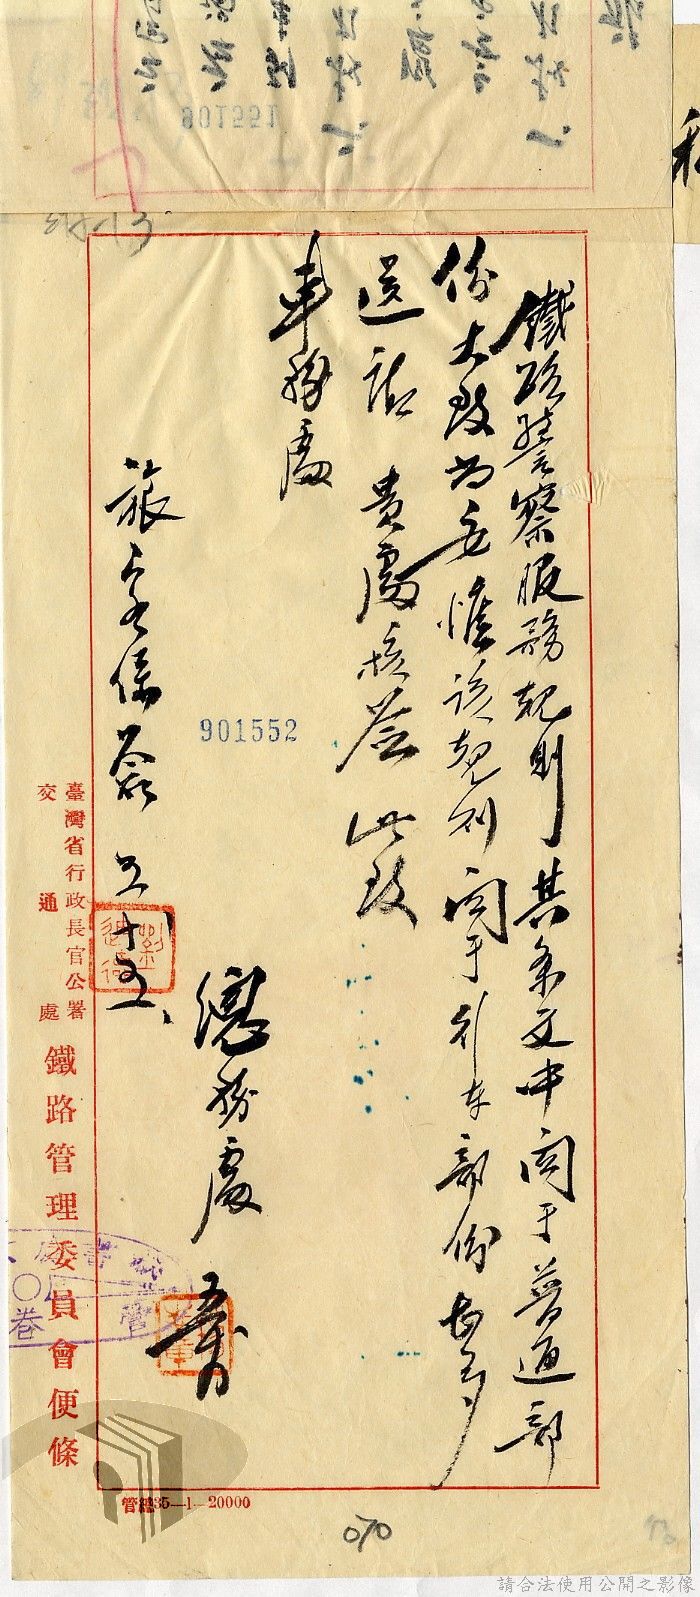 鐵路警察服務規則其条文中関于普通部
份大致尚妥惟該規則関于列車部份甚多
送請 貴處核簽 此致
車務處
總務處
五
旅客係簽 五十五
901552
901551
臺灣省行政長官公署
交通處
鐵路管理委員會便條
管總35—1—20000
070
請合法使用公開之影像